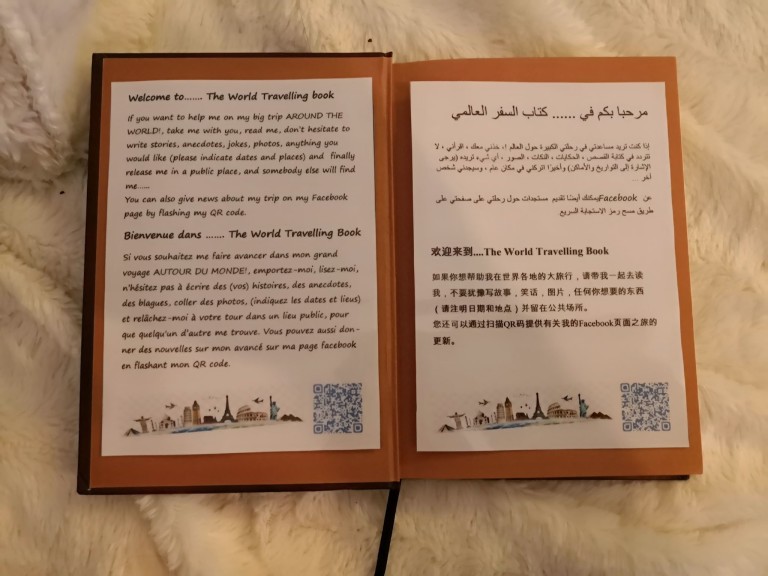 Welcome to....... The World Travelling book
If you want to help me on my big trip AROUND THE
WORLD!, take me with you, read me, don't hesitate to
write stories, anecdotes, jokes, photos, anything you
would like (please indicate dates and places) and finally
release me in a public place, and somebody else will find
me......
You can also give news about my trip on my Facebook
page by flashing my QR code.
Bienvenue dans ....... The World Travelling Book
Si vous souhaitez me faire avancer dans mon grand
voyage AUTOUR DU MONDE!, emportez-moi, lisez-moi,
n'hésitez pas à écrire des (vos) histoires, des anecdotes,
des blagues, coller des photos, (indiquez les dates et lieus)
et relâchez-moi à votre tour dans un lieu public, pour
que quelqu'un d'autre me trouve. Vous pouvez aussi don-
ner des nouvelles sur mon avancé sur ma page facebook
en flashant mon QR code.
مرحبا بكم في ...... كتاب السفر العالمي
إذا كنت تريد مساعدتي في رحلتي الكبيرة حول العالم !، خذني معك ، اقرأني ، لا
تتردد في كتابة القصص ، الحكايات ، النكات ، الصور ، أي شيء تريده (يرجى
الإشارة إلى التواريخ والأماكن) وأخيرًا اتركني في مكان عام ، وسيجدني شخص
آخر ....
يمكنك أيضًا تقديم مستجدات حول رحلتي على صفحتي على Facebook عن
طريق مسح رمز الاستجابة السريع
欢迎来到....The World Travelling Book
如果你想帮助我在世界各地的大旅行，请带我一起去读
我，不要犹豫写故事，笑话，图片，任何你想要的东西
（请注明日期和地点）并留在公共场所。
您还可以通过扫描QR码提供有关我的Facebook页面之旅的
更新。